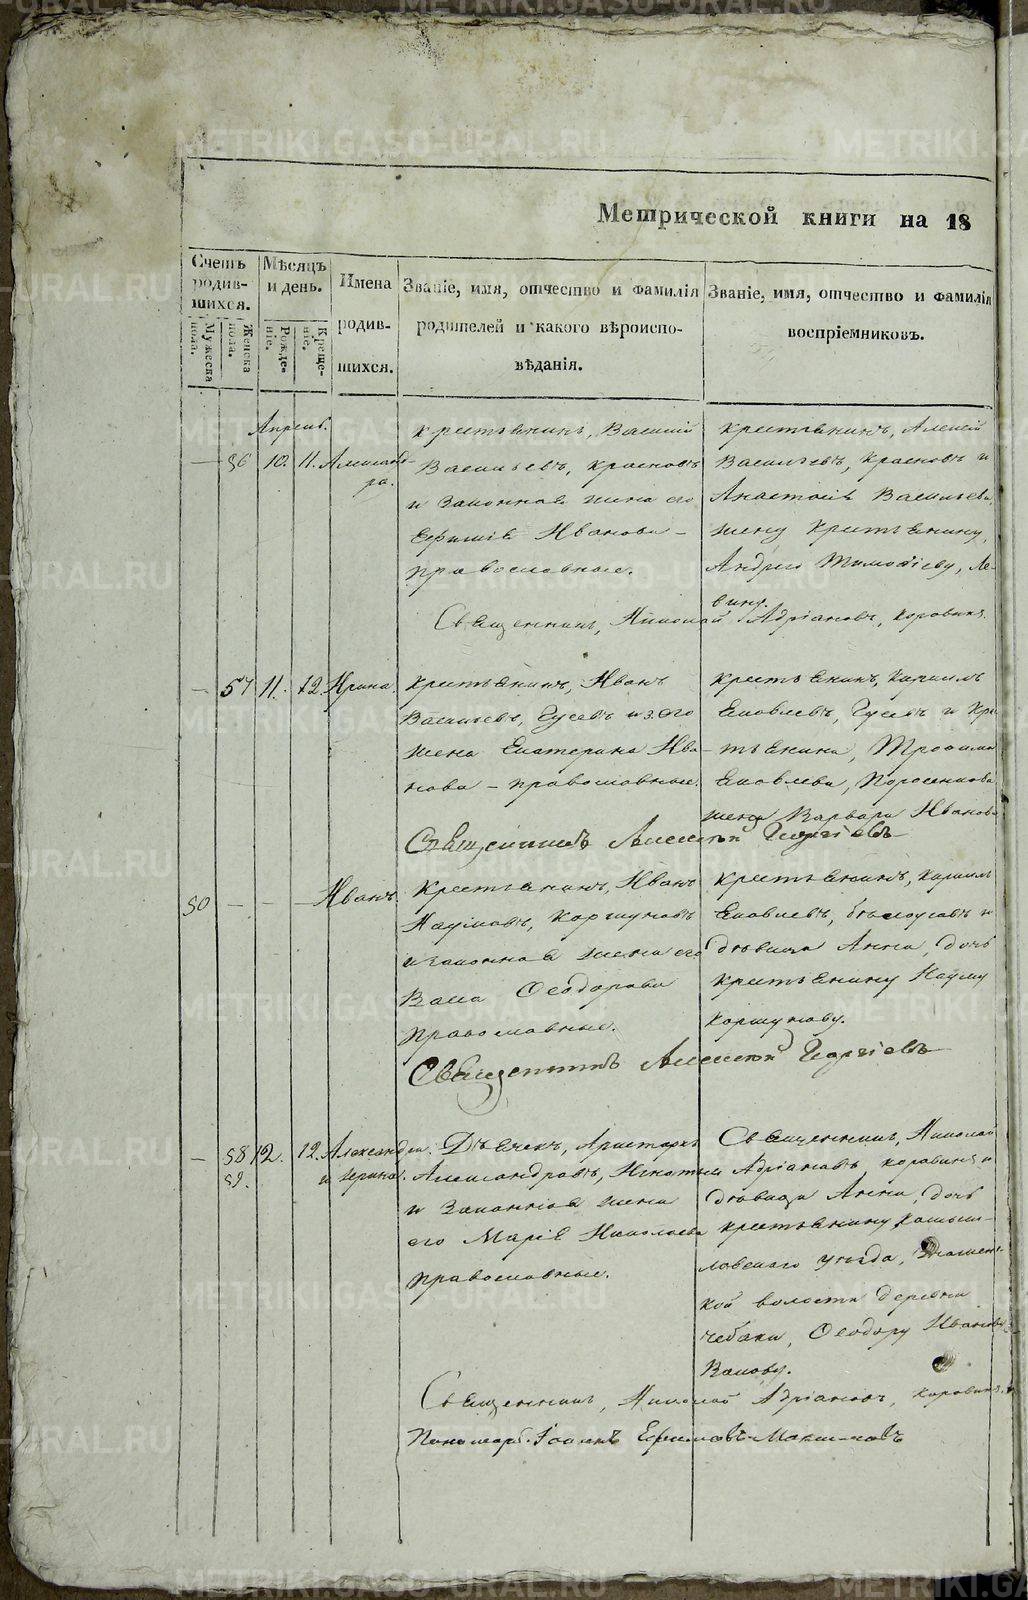 Метрической книги на 18
Счетъ родившихся.
Мужеска пола.
Женска пола.
Мѣсяцъ и день.
Рождѣніе.
Крещеніе.
Имена родившихся.
Званіе, имя, отчество и фамилія родителей и какого вѣроисповѣданія.
Званіе, имя, отчество и фамилія воспріемниковъ.
Апрель.
— 56 10. 11. Александра.
Крестьянинъ, Василій
Васильевъ, Красновъ
и законная жена его
Ефимія Иванова –
православные.
Крестьянинъ, Алексей
Васильевъ, Красновъ и
Анастасія Васильева,
жену крестьянину,
Андрею Тимофіеву, Левину.
Священникъ, Николай Адріановъ, Коровинъ.
— 57 11. 12. Ирина.
Крестьянинъ, Иванъ
Васильевъ, Гусевъ и з. его
жена Екатерина Иванова – православные.
Крестьянинъ, Кириллъ
Яковлевъ, Гусевъ и Крестьянина, Трофима
Яковлева, Поросенкова
жена Варвара Иванова
Священникъ Алексій Георгіевъ
50 — — — Иванъ.
Крестьянинъ, Иванъ
Наумовъ, Коршуновъ
и законная жена его
Васа Феодорова
православные.
Крестьянинъ, Кириллъ
Яковлевъ, Белоусовъ и
дѣвица Анна, дочь
крестьянину Науму
Коршунову.
Священникъ Алексій Георгіевъ
— 58 59. 12. 12. Александра и Ирина.
Дьячекъ, Аристархъ
Александровъ, Игнатьи
и законная жена
его Марія Николаева
православные.
Священникъ, Николай
Адріановъ, Коровинъ и
дѣвица Анна, дочь
крестьянину Камышловскаго уѣзда,
кой волости деревни
Чебаки, Феодору Иванову
Священникъ, Николай Адріановъ, Коровинъ и
Пономарь Іоаннъ Ефимовъ
METRIKI.GASO-URAL.RU